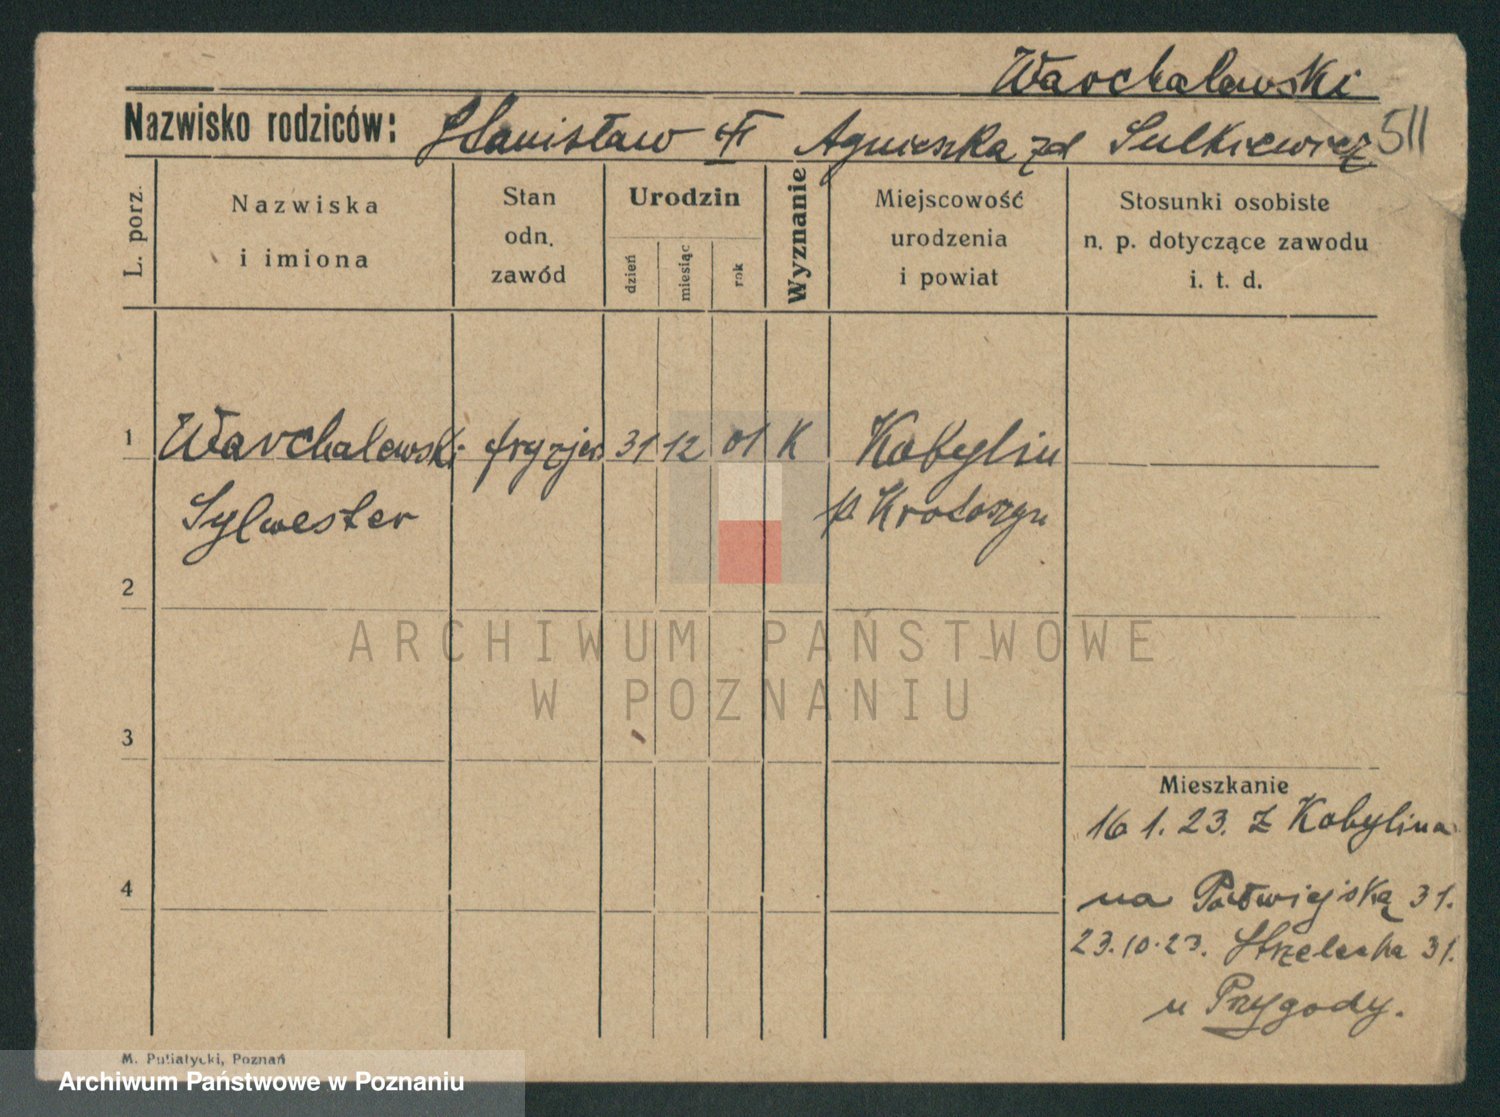 Warchalewski
Nazwisko rodziców: Stanisław Agnieszka zd Sulkiewicz 511
L. porz.
Nazwiska
i imiona
Stan
odn.
zawód
Urodzin
dzień
miesiąc
rok
Wyznanie
Miejscowość
urodzenia
i powiat
Stosunki osobiste
n. p. dotyczące zawodu
i. t. d.
1 Warchalewski fryzjer 31 12 01 K Kobylin
Sylwester p. Krotoszyn
2
ARCHIWUM PAŃSTWOWE
W POZNANIU
3
Mieszkanie
16 1. 23. z Kobylina
4
na Półwiejską 31.
23.10.23. Strzelecka 31.
u Przygody.
M. Putiatycki, Poznań
Archiwum Państwowe w Poznaniu